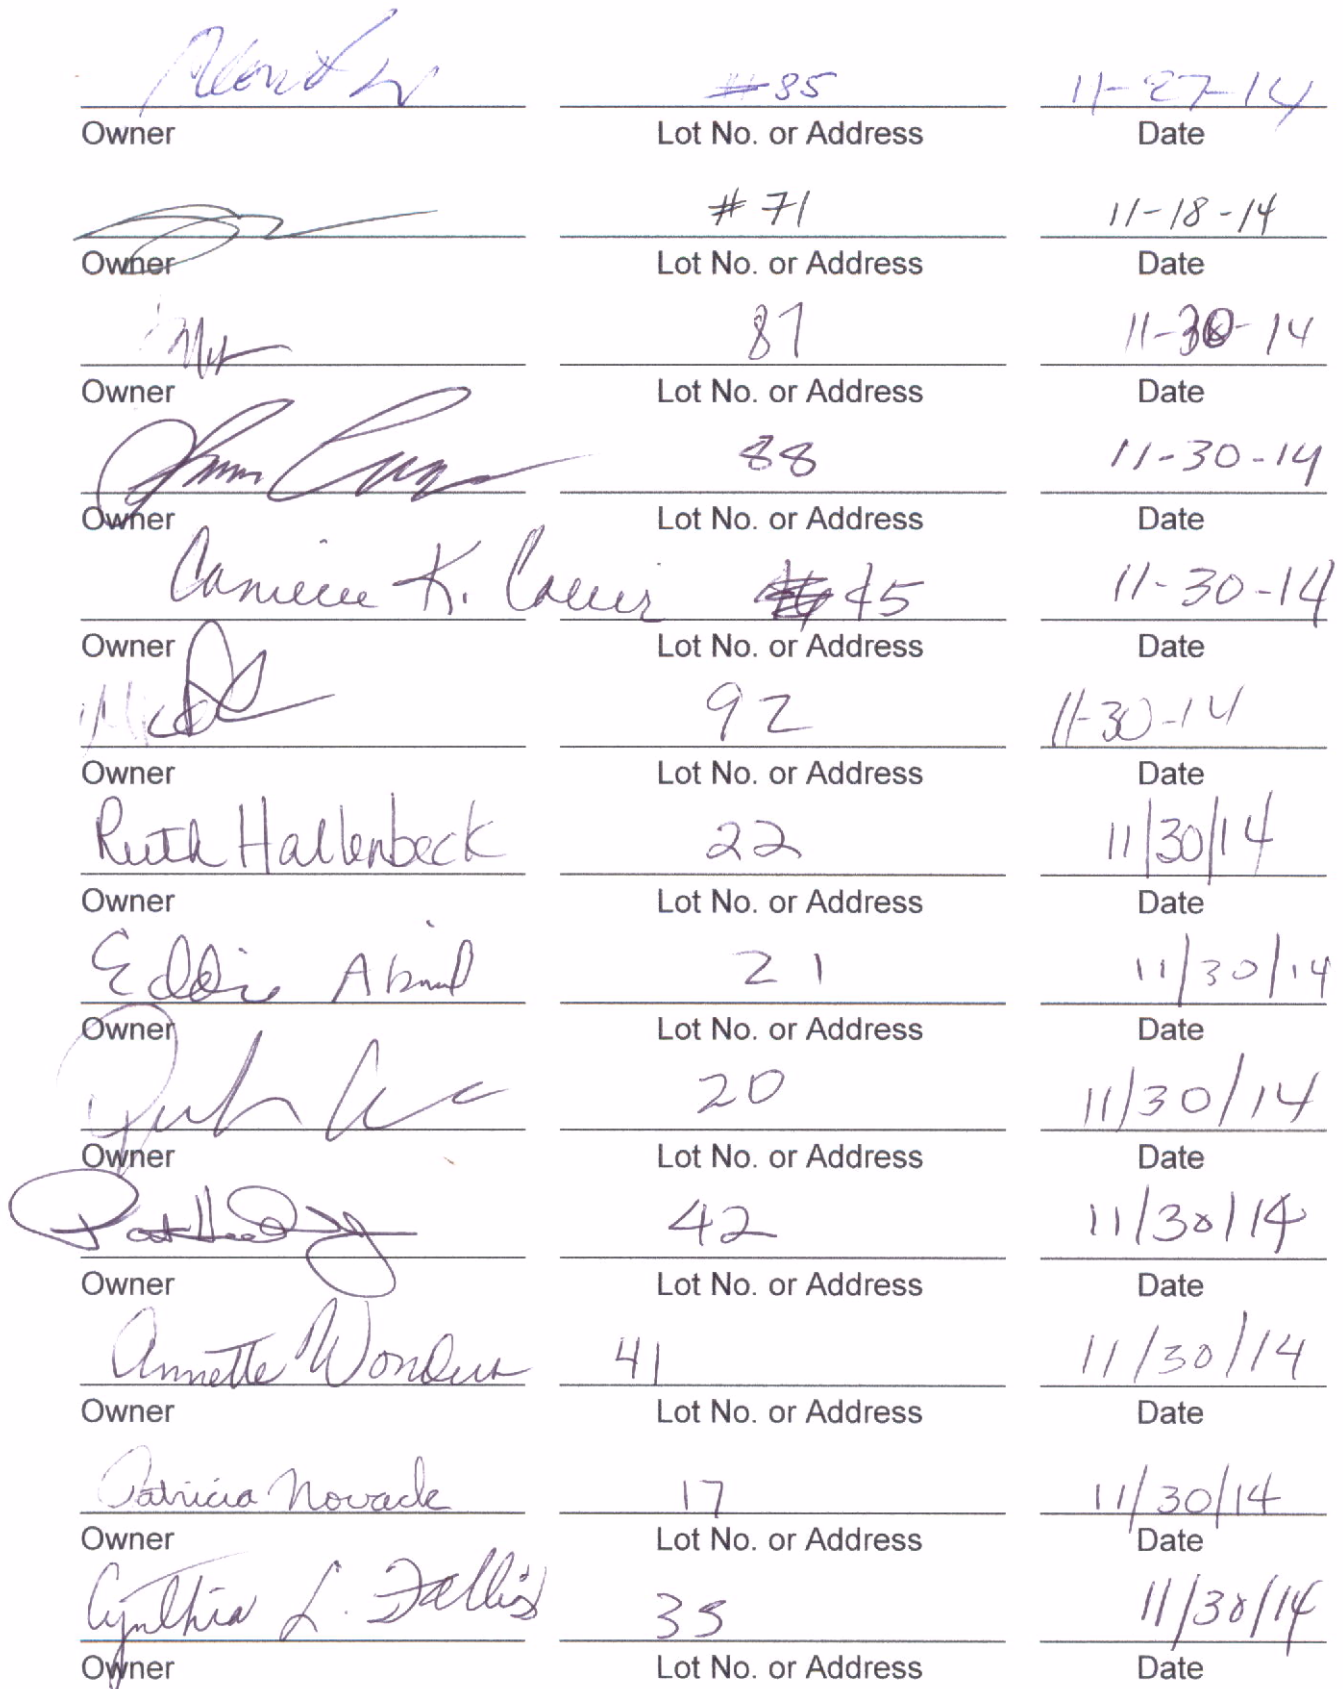 #85 11-27-14
Owner Lot No. or Address Date
#71 11-18-14
Owner Lot No. or Address Date
87 11-30-14
Owner Lot No. or Address Date
88 11-30-14
Owner Lot No. or Address Date
K. 45 11-30-14
Owner Lot No. or Address Date
92 11-30-14
Owner Lot No. or Address Date
Ruth Hallenbeck 22 11/30/14
Owner Lot No. or Address Date
Eddie 21 11/30/14
Owner Lot No. or Address Date
20 11/30/14
Owner Lot No. or Address Date
42 11/30/14
Owner Lot No. or Address Date
Annette Wonders 41 11/30/14
Owner Lot No. or Address Date
Patricia Novack 17 11/30/14
Owner Lot No. or Address Date
Cynthia L. Fallis 35 11/30/14
Owner Lot No. or Address Date